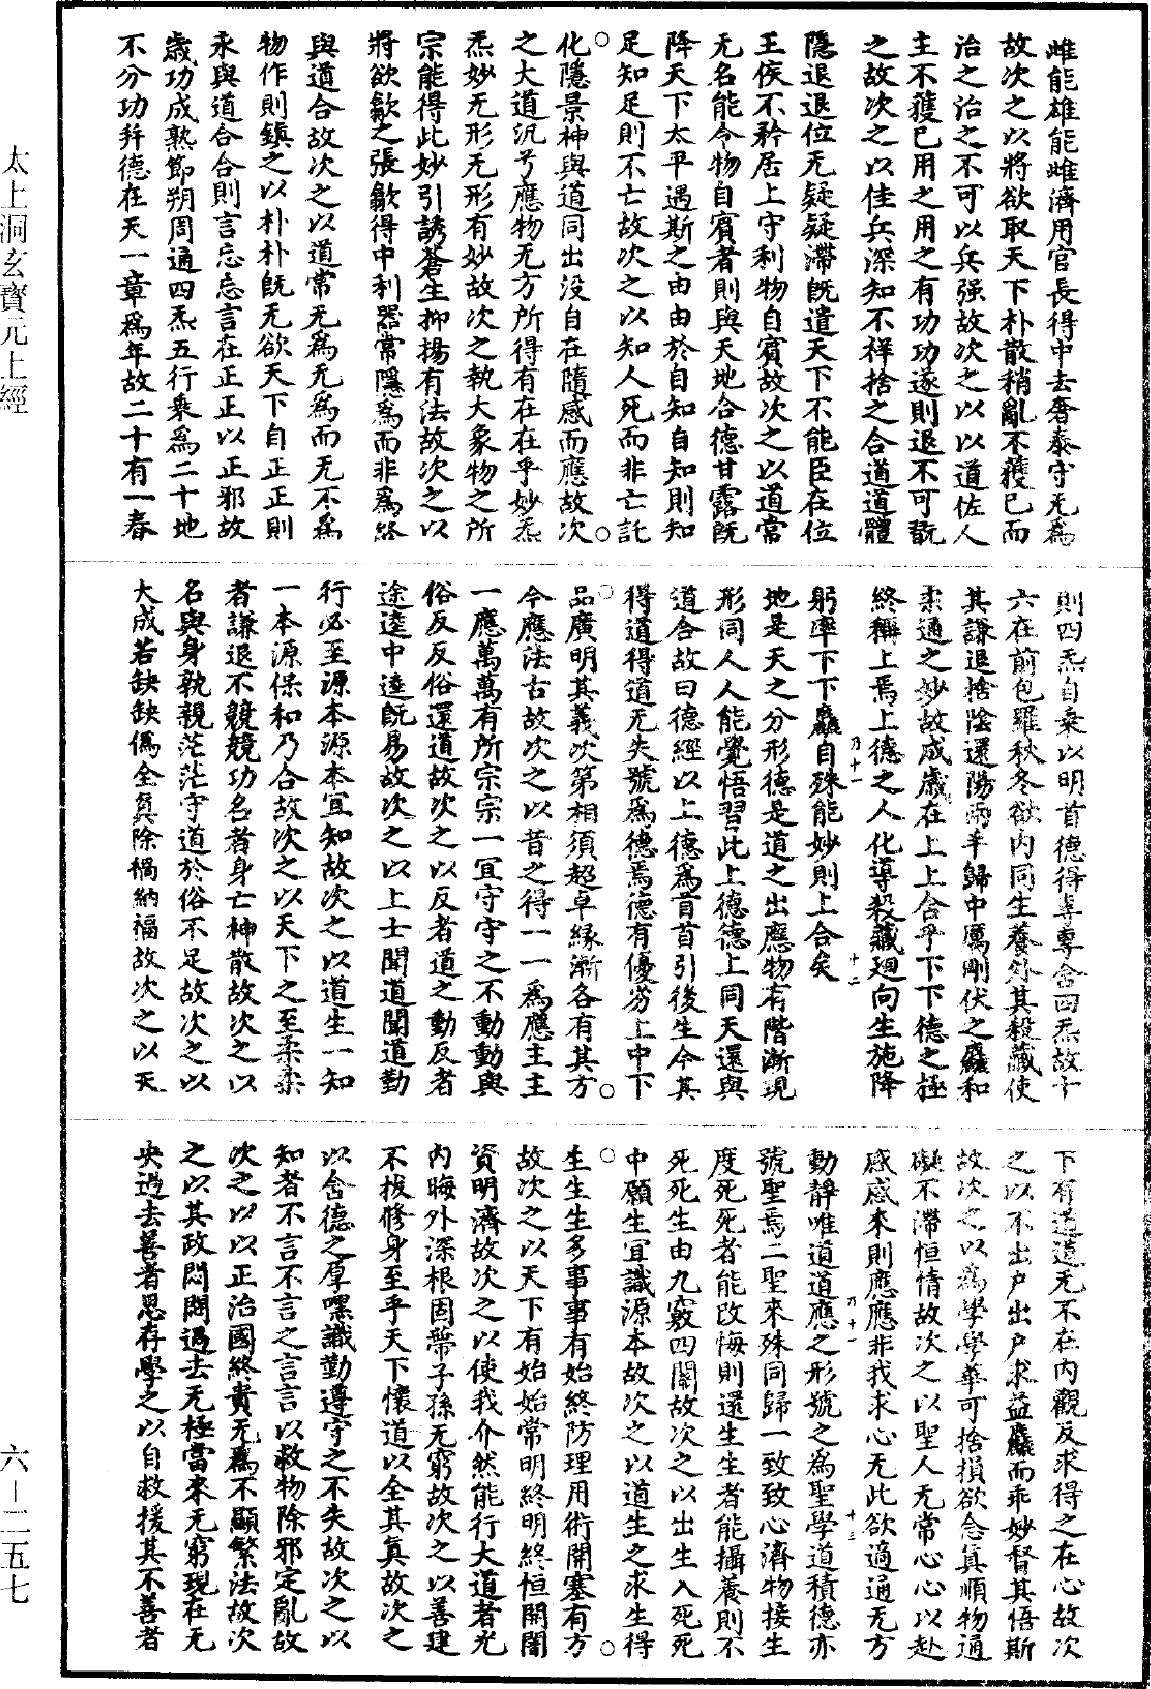 雌能雄能雌濟用官長得中去奢泰守无爲
故次之以將欲取天下朴散稍亂不獲已而
治之治之不可以兵强故次之以以道佐人
主不獲已用之用之有功功遂則退不可翫
之故次之以佳兵深知不祥捨之合道道體
隱退退位无疑疑滯旣遣天下不能臣在位
王侯不矜居上守利物自賓故次之以道常
无名能令物自賓者則與天地合德甘露旣
降天下太平遇斯之由由於自知自知則知
足知足則不亡故次之以知人死而非亡託
化隱景神與道同出没自在隨感而應故次
之大道汎兮應物无方所得有在在乎妙炁
炁妙无形无形有妙故次之執大象物之所
宗能得此妙引誘蒼生抑揚有法故次之以
將欲歙之張歙得中利器常隱爲而非爲終
與道合故次之以道常无爲无爲而无不爲
物作則鎮之以朴朴旣无欲天下自正正則
永與道合合則言忘忘言在正正以正邪故
歲功成熟節朔周通四炁五行乘爲二十地
不分功幷德在天一章爲年故二十有一春
則四炁自乘以明首德得專專舍四炁故十
六在前包羅秋冬欲内同生養外其殺藏使
其謙退捨陰還陽兩半歸中厲剛伏之麤和
柔通之妙故成歲在上上合乎下下德之極
終稱上焉上德之人化導殺藏迴向生施降
躬率下下麤自殊能妙則上合矣
地是天之分形德是道之出應物有階漸現
形同人人能覺悟習此上德德上同天還與
道合故曰德經以上德爲首首引後生令其
得道得道无失號爲德焉德有優劣上中下
品廣明其義次第相須超卓緣漸各有其方
今應法古故次之以昔之得一一爲應主主
一應萬萬有所宗宗一宜守守之不動動與
俗反反俗還道故次之以反者道之動反者
途逵中逵旣易故次之以上士聞道聞道勤
行必至源本源本宜知故次之以道生一知
一本源保和乃合故次之以天下之至柔柔
者謙退不競競功名者身亡神散故次之以
名與身孰親茫茫守道於俗不足故次之以
大成若缺缺僞全真除禍納福故次之以天
下有道道无不在内觀反求得之在心故次
之以不出户出户求益麤而乖妙督其悟斯
故次之以爲學學華可捨損欲念真順物通
礙不滯恒情故次之以聖人无常心心以赴
感感來則應應非我求心无此欲適通无方
動靜唯道道應之形號之爲聖學道積德亦
號聖焉二聖來殊同歸一致致心濟物接生
度死死者能改悔則還生生者能攝養則不
死死生由九竅四關故次之以出生入死死
中願生宜識源本故次之以道生之求生得
生生生多事事有始終防理用術開塞有方
故次之以天下有始始常明終明終恒開闇
資明濟故次之以使我介然能行大道者光
内晦外深根固蔕子孫无窮故次之以善建
不拔修身至乎天下懷道以全其真故次之
以含德之厚嘿識勤遵守之不失故次之以
知者不言不言之言言以救物除邪定亂故
次之以以正治國終貴无爲不顯繁法故次
之以其政悶悶過去无極當來无窮現在无
央過去善者恩存學之以自救援其不善者
乃十一
十二
乃十一
十三
太上洞玄寶元上經
六—二五七